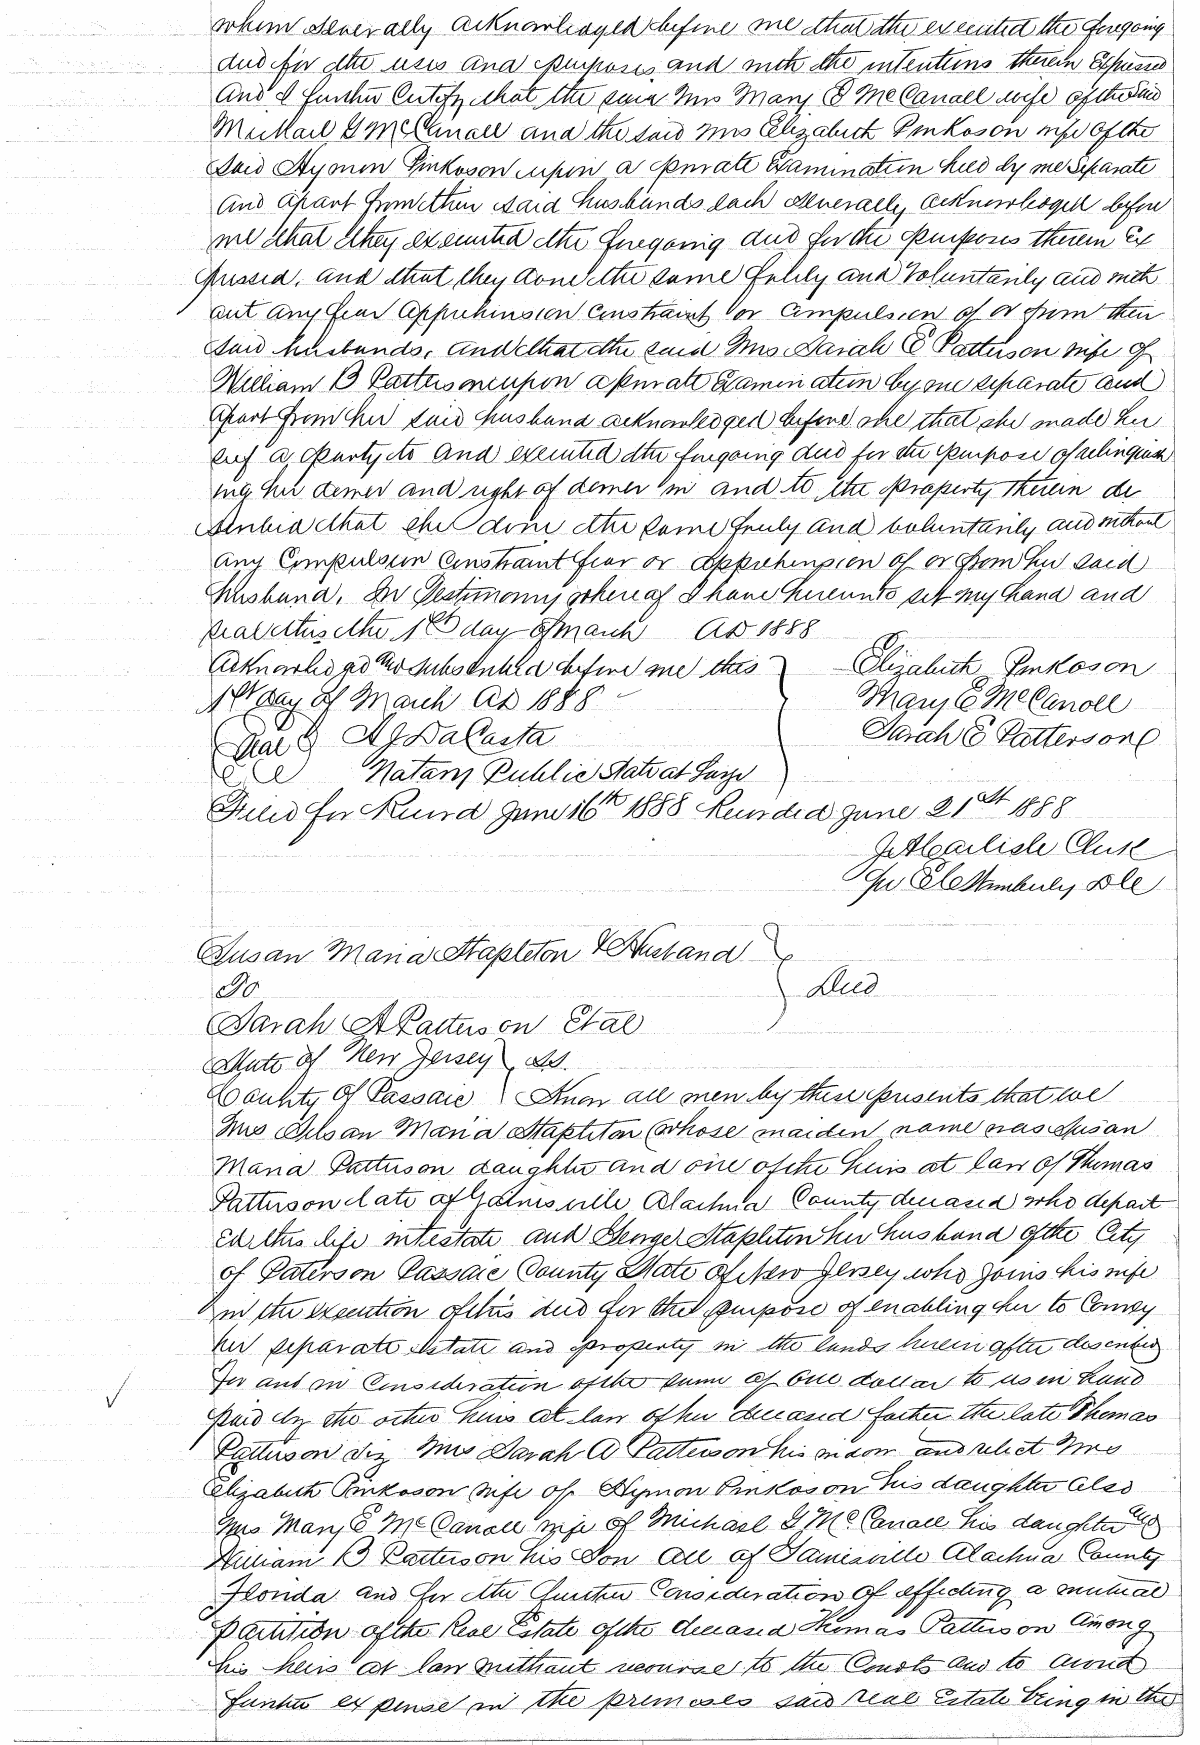 whom severally acknowledged before me that the executed the foregoing
deed for the uses and purposes and with the intentions therein Expressed
And I further Certify that the said Mrs Mary E McCanall wife of the said
Michail G McCanall and the said Mrs Elizabeth Pinkoson wife of the
said Hymon Pinkoson upon a private Examination hied by me Separate
and apart from their said husbands each severally acknowledged before
me that they executed the foregoing deed for the purposes therein Ex
pressed, and that they done the same freely and voluntarily and with
out any fear apprehension constraint or compulsion of or from their
said husbands, and that the said Mrs Sarah E Patterson wife of
William B Patterson upon a private Examination by me separate and
apart from her said husband acknowledged before she that she made her
self a party to and executed the foregoing deed for the purpose of relinquish
ing her dower and right of dower in and to the property therein de
scribed that she done the same freely and voluntarily and without
any Compulsion Constraint fear or apprehension of or from her said
husband. In Testimony where of I have hereunto set my hand and
seal this the 1st day of March AD 1888
Acknowledged and subscribed before me this } Elizabeth Pinkoson
1st day of March AD 1888 Mary E McCanoll
(Seal) A J DaCosta Sarah E Patterson
Notary Public State at Large
Filed for Record June 16th 1888 Recorded June 21st 1888
J A Carlisle Clerk
per Wimberly DC
Susan Maria Stapleton & Husband
To } Deed
Sarah A Patterson Et al
State of New Jersey } SS.
County of Passaic } Know all men by these presents that we
Mrs Susan Maria Stapleton (whose maiden name was Susan
Maria Patterson daughter and one of the heirs at law of Thomas
Patterson late of Gainesville Alachua County deceased who depart
ed this life intestate and George Stapleton her husband of the City
of Paterson Passaic County State of New Jersey who joins his wife
in the execution of this deed for the purpose of enabling her to Convey
her separate estate and property in the lands herein after described
for and in Consideration of the sum of One dollar to us in hand
paid by the other heirs at law of her deceased father the late Thomas
Patterson viz Mrs Sarah A Patterson his widow and relict Mrs
Elizabeth Pinkoson wife of Hymon Pinkoson his daughter also
Mrs Mary E McCanall wife of Michael G McCanall his daughter and
William B Patterson his Son all of Gainesville Alachua County
Florida and for the further Consideration of effecting a mutual
partition of the Real Estate of the deceased Thomas Patterson Among
his heirs at law without recourse to the Courts and to avoid
further expense in the premoses said real Estate being in the